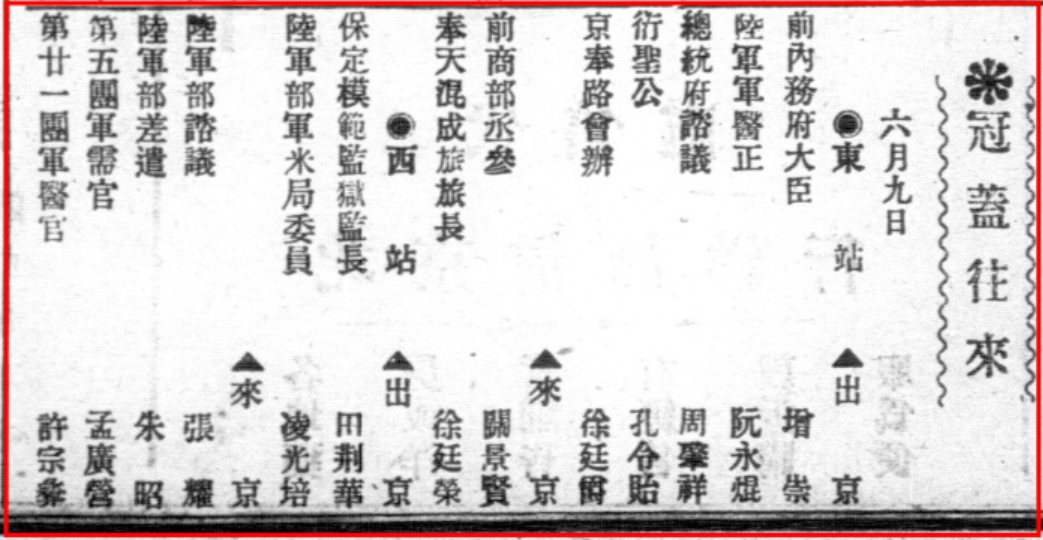 冠蓋往來
六月九日
◉東站 ▲出京
前內務府大臣 增崇
陸軍軍醫正 阮永焜
總統府諮議 周肇祥
衍聖公 孔令貽
京奉路會辦 徐廷爵
▲來京
前商部丞參 關景賢
奉天混成旅旅長 徐廷榮
◉西站 ▲出京
保定模範監獄監長 田荆華
陸軍部軍米局委員 凌光培
▲來京
陸軍部諮議 張耀
陸軍部差遣 朱昭
第五團軍需官 孟廣營
第廿一團軍醫官 許宗黎